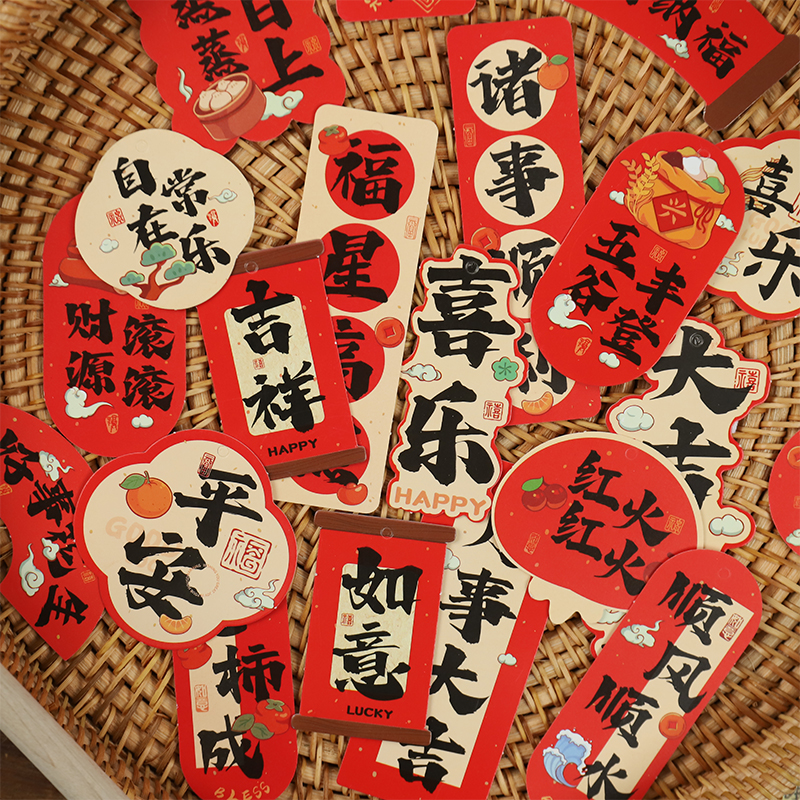 蒸蒸
日上
纳福
诸
事
顺
福
星
自在
常乐
喜
乐
五谷
丰登
财源
滚滚
吉
祥
HAPPY
喜
乐
HAPPY
大
吉
平
安
GOOD
红火
红火
如
意
LUCKY
事
大
吉
柿
成
BLESS
顺
风
顺
水